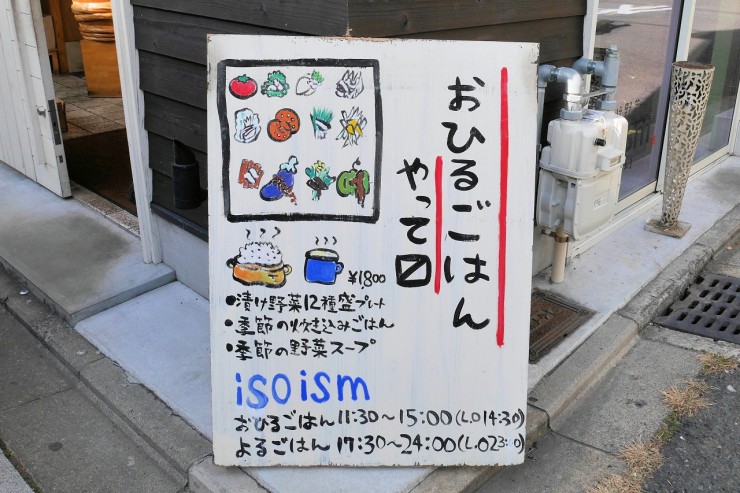 おひるごはん
やって〼
¥1800
・漬け野菜12種盛プレート
・季節の炊き込みごはん
・季節の野菜スープ
isoism
おひるごはん 11:30〜15:00(L.O 14:30)
よるごはん 17:30〜24:00(L.O 23:00)